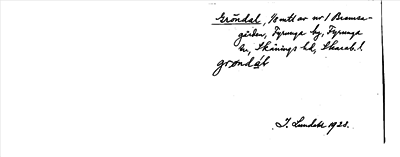 Gröndal, 1/8 mtl av nr 1 Bremse-
gården, Tyrunga by, Tyrunga
sn, Skånings hd, Skarab. l.
grøndαl
I. Lundahl 1928.